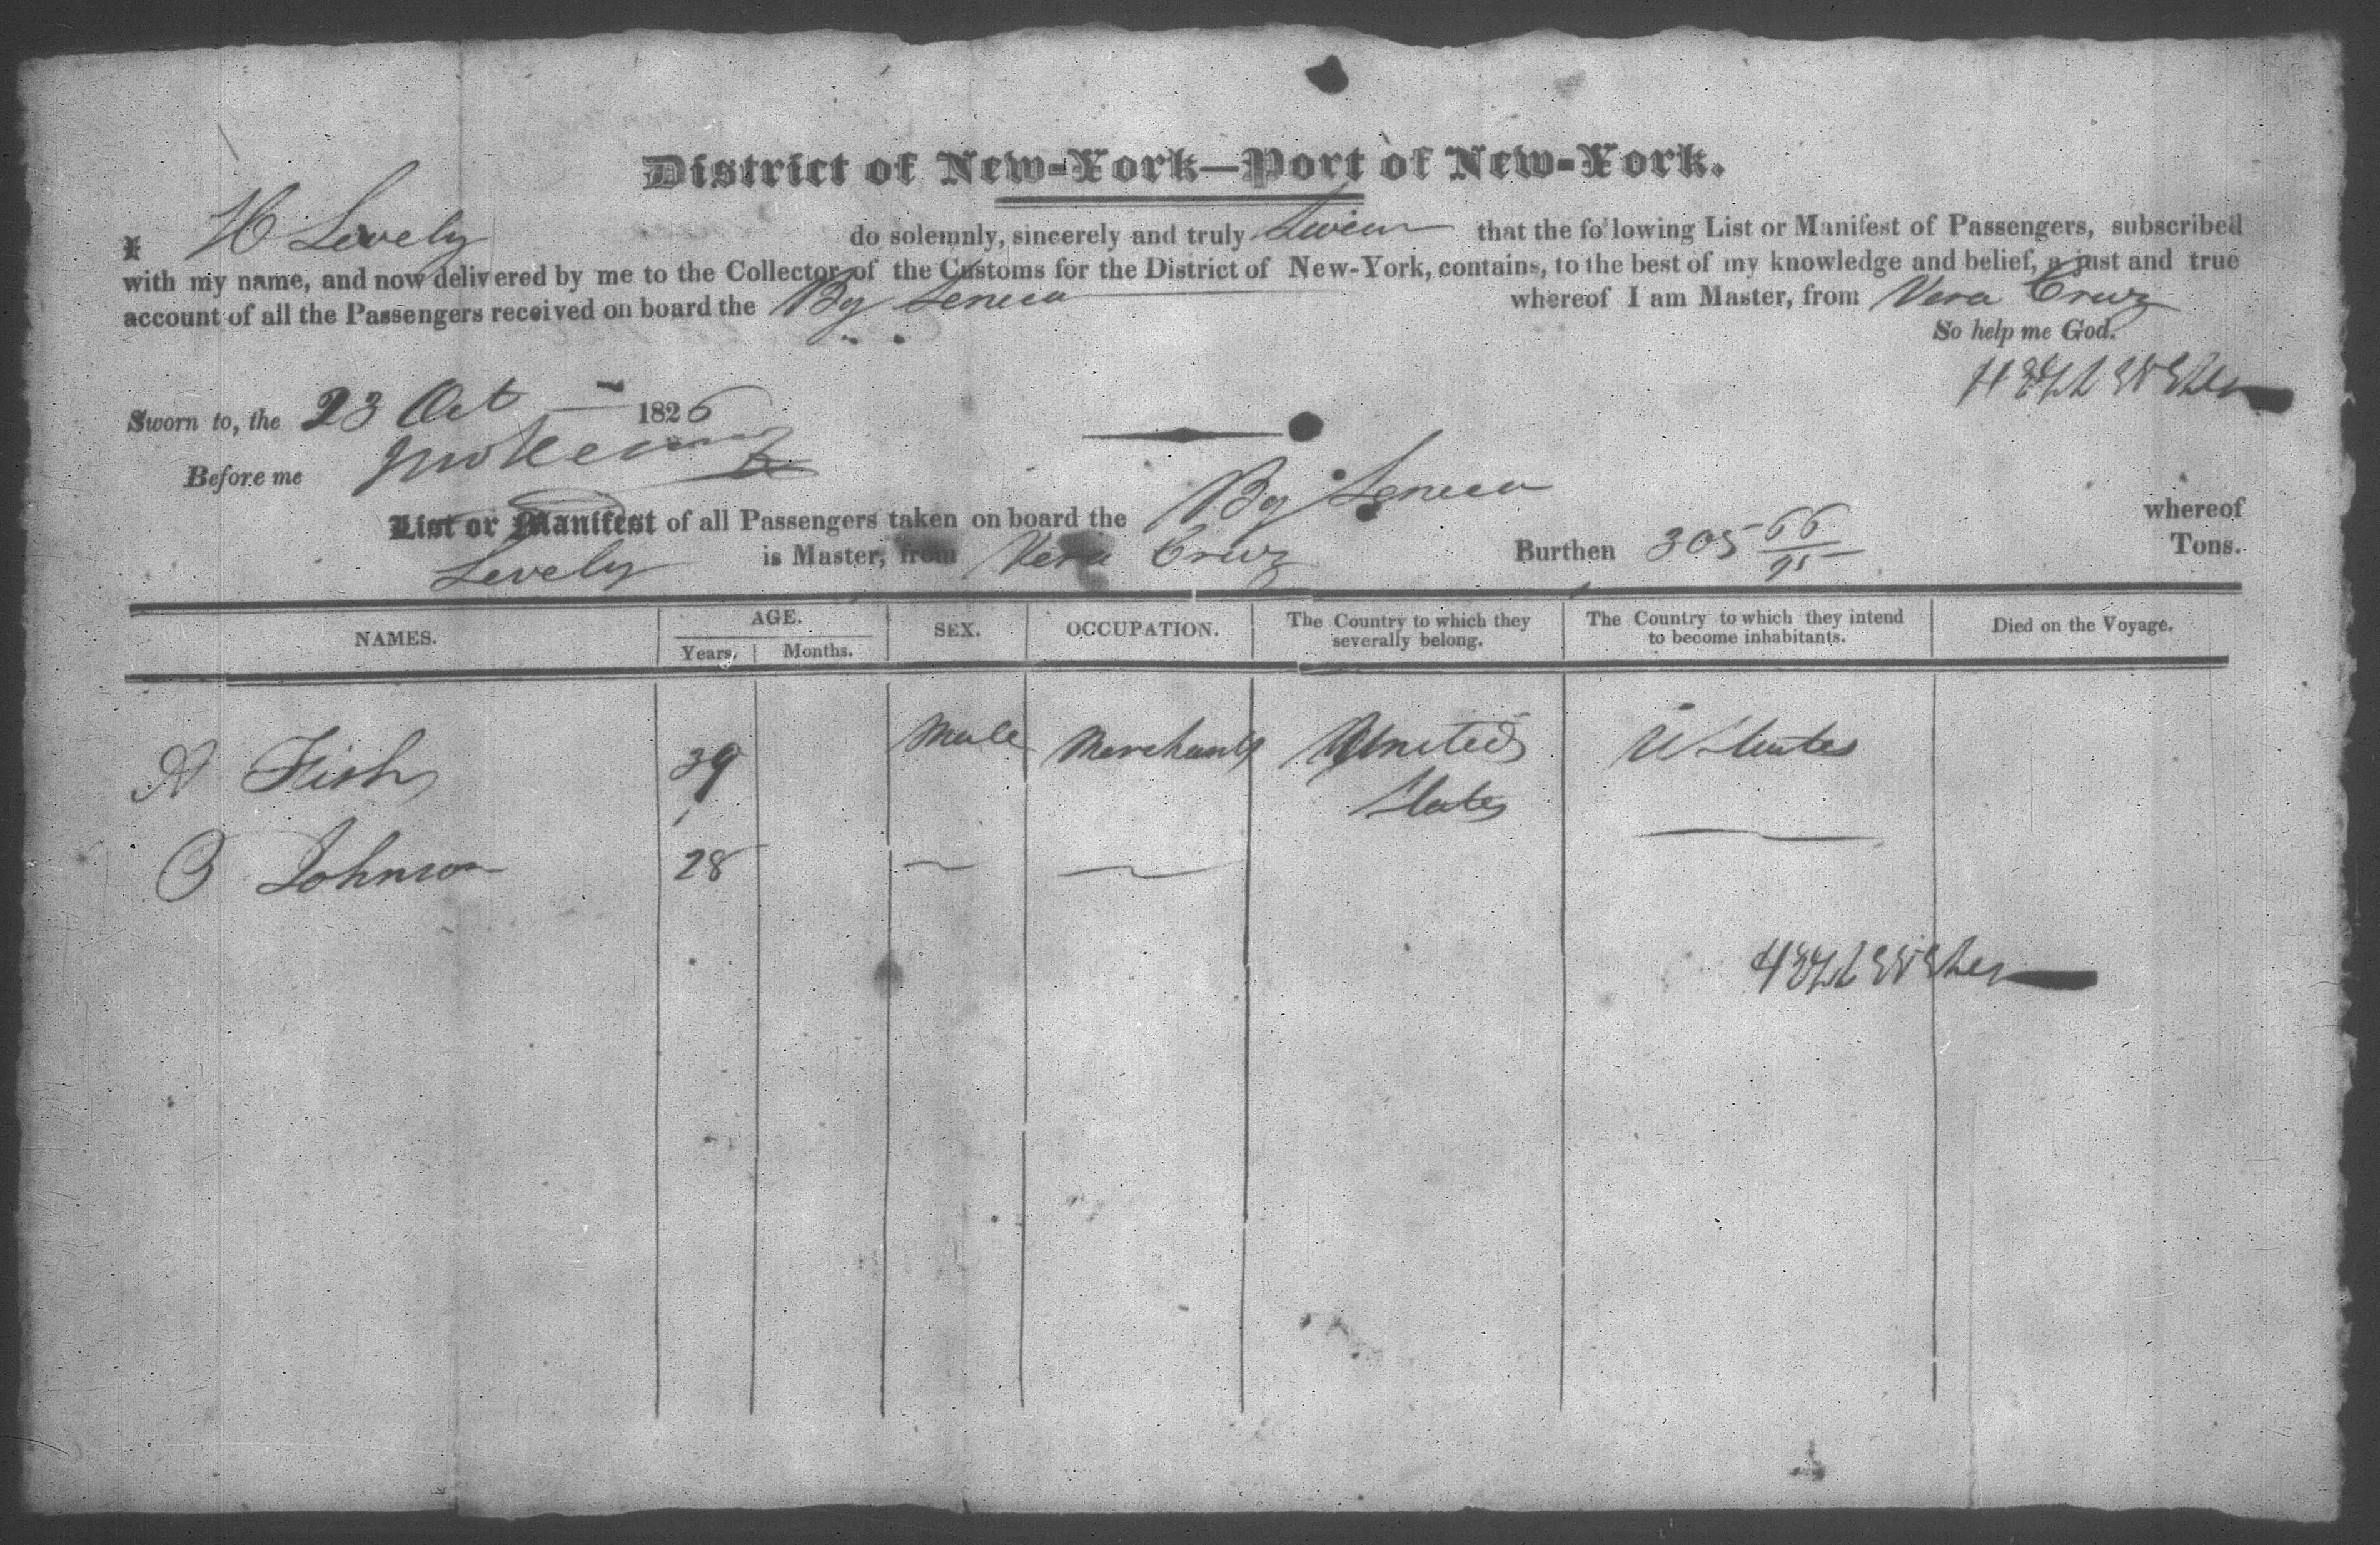 District of New-York—Port of New-York.
I H Levely do solemnly, sincerely and truly Swear that the following List or Manifest of Passengers, subscribed
with my name, and now delivered by me to the Collector of the Customs for the District of New-York, contains, to the best of my knowledge and belief, a just and true
account of all the Passengers received on board the Bg Seneca whereof I am Master, from Vera Cruz
So help me God.
Sworn to, the 23 Oct 1826
Before me
List or Manifest of all Passengers taken on board the Bg Seneca whereof
Levely is Master, from Vera Cruz Burthen 305 66/95 Tons.
NAMES. AGE. Years. Months. SEX. OCCUPATION. The Country to which they severally belong. The Country to which they intend to become inhabitants. Died on the Voyage.
A Fish 39 Male Merchants United States U States
O Johnson 28